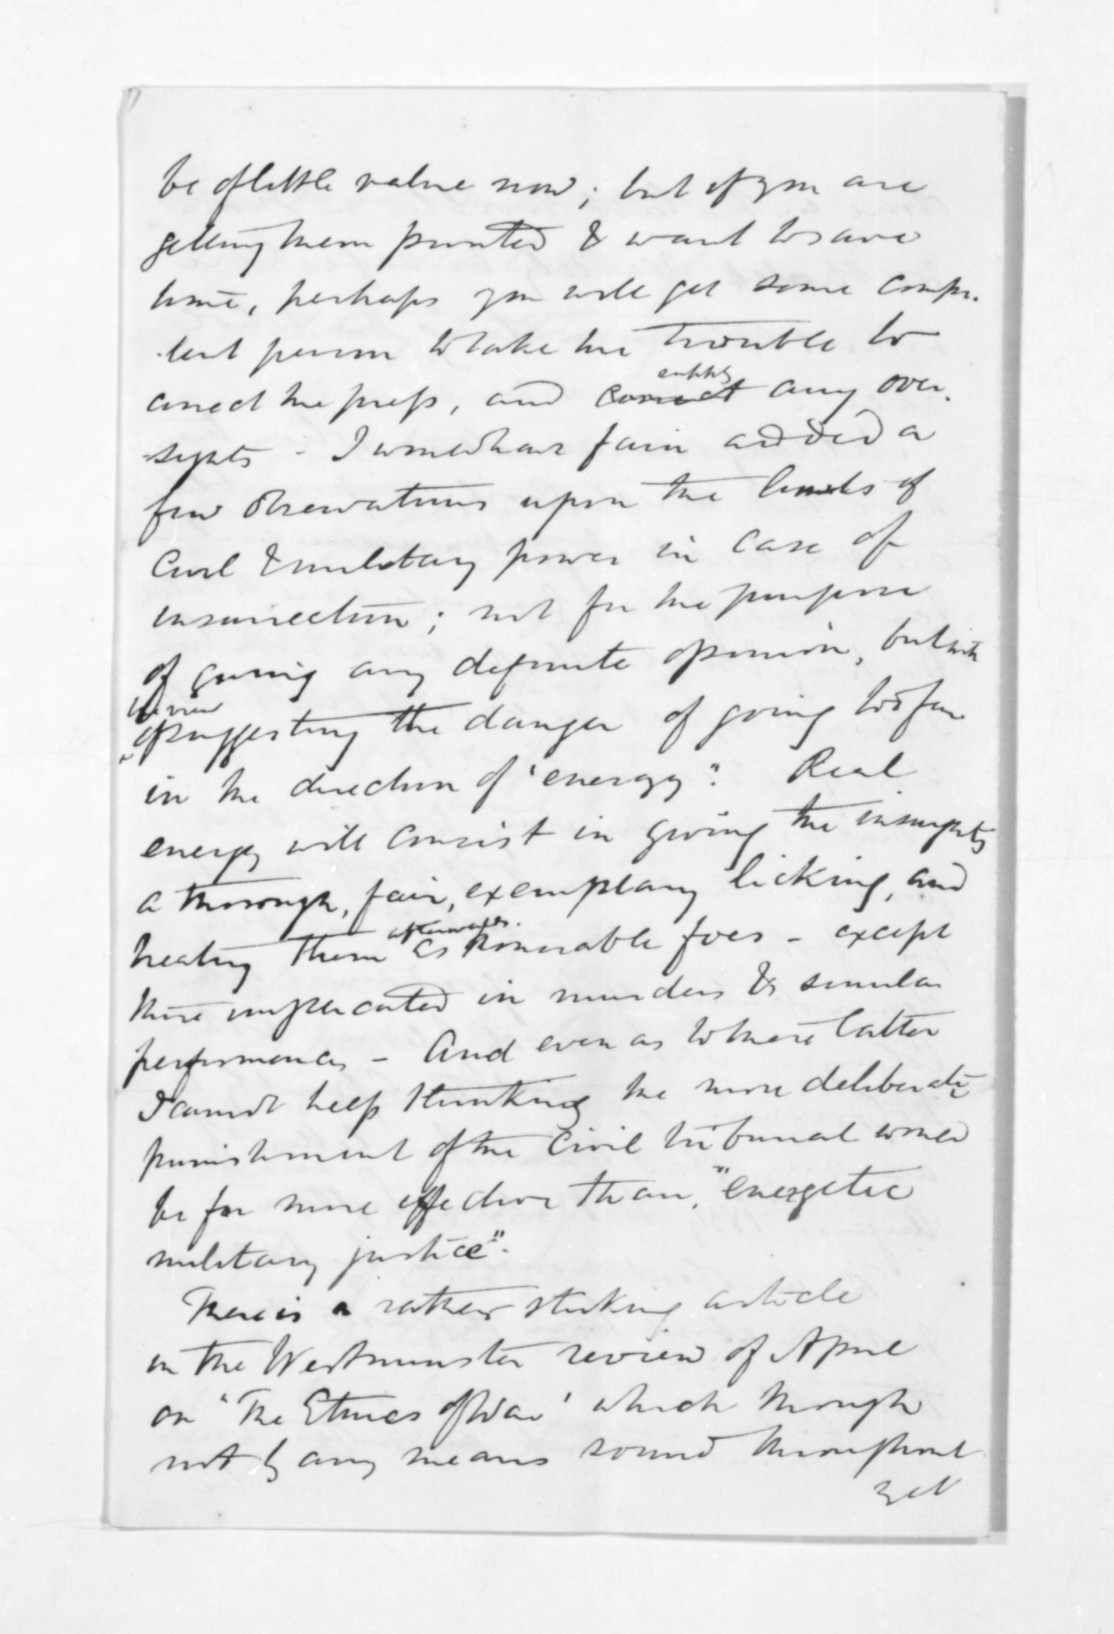 be of little value now; but if you are
getting them printed & want to save
time, perhaps you will get some compe-
tent person to take the trouble to
correct the press, and correct any over-
supply
sights - I would have fain added a
few observations upon the limits of
Civil & military power in case of
insurrection; not for the purpose
of giving any definite opinion, but with
the view
of suggesting the danger of going too far
in the direction of "energy". Real
energy will consist in giving the insurgents
a thorough, fair, exemplary licking, and
treating them as honorable foes - except
afterwards
those implicated in murders & similar
performances - And even as to these latter
I cannot help thinking the more deliberate
punishment of the civil tribunal would
be far more effective than, "energetic
military justice".
There is a rather striking article
in the Westminster review of April
on "The Ethics of War" which though
not by any means sound throughout
yet